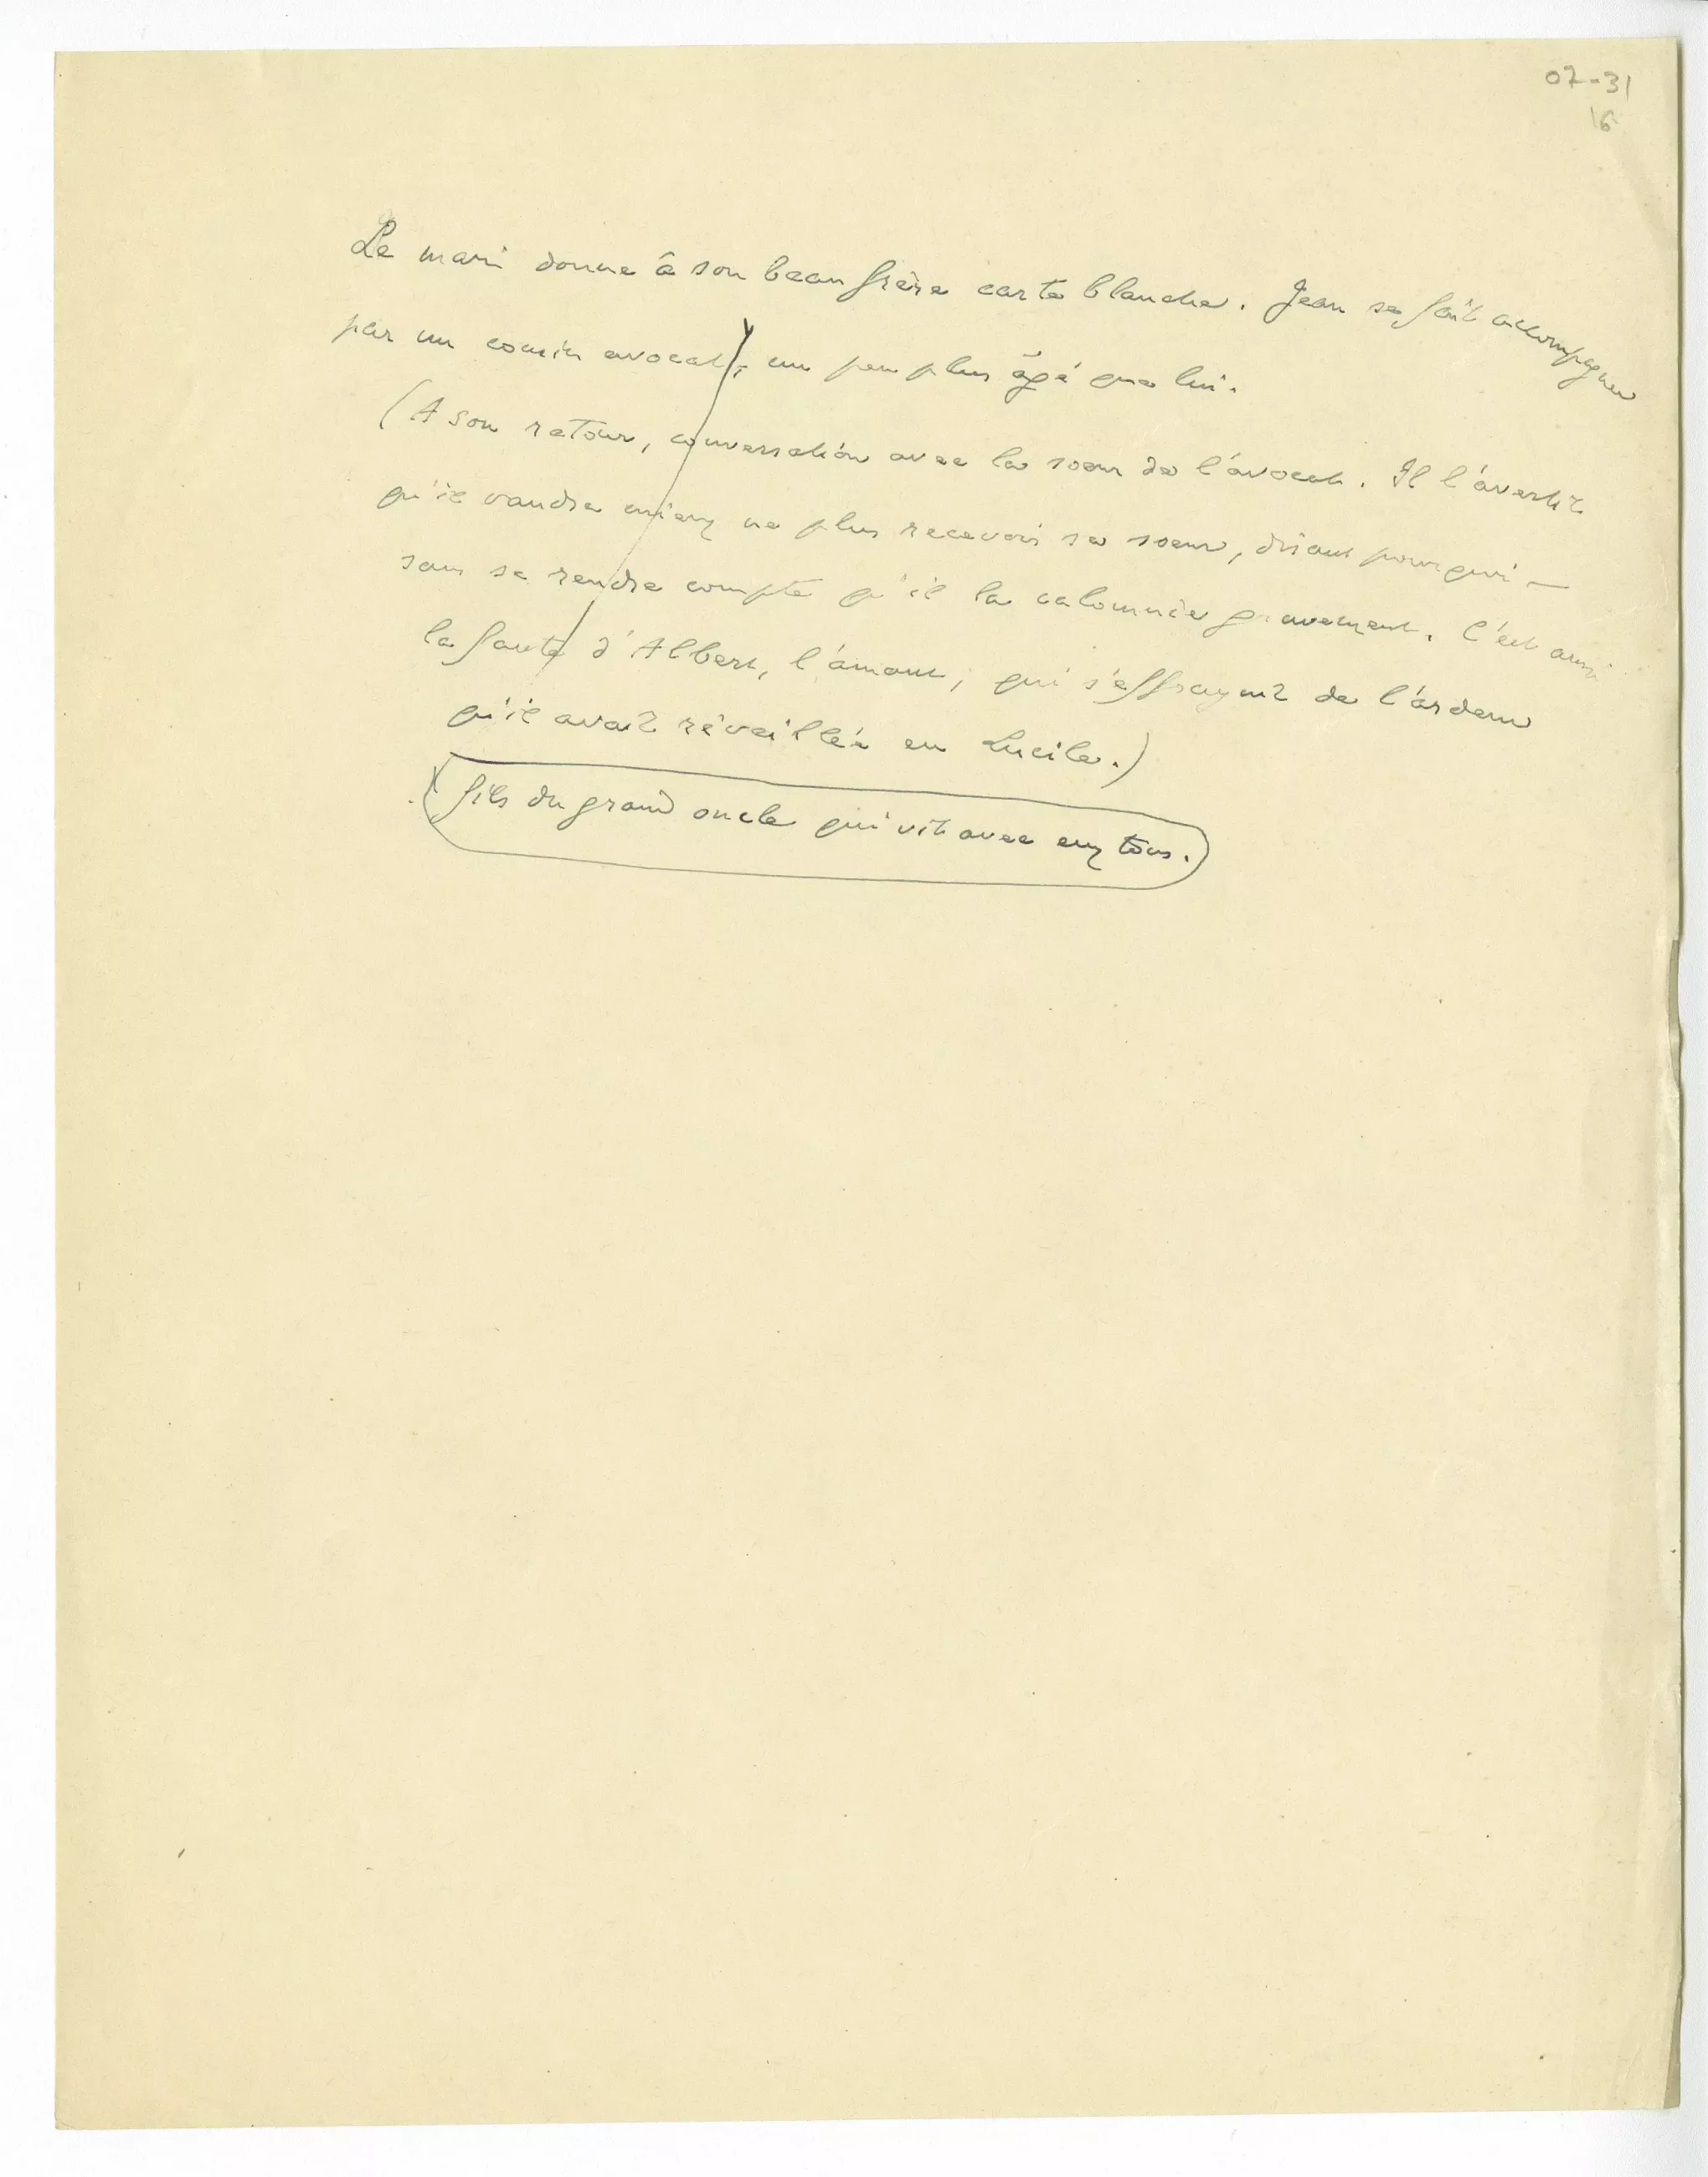 07-31
16
Le mari donne à son beau frère carte blanche. Jean se fait accompagner
par un cousin avocat, un peu plus âgé que lui.
(A son retour, conversation avec la soeur de l'avocat. Il l'avertit
qu'il vaudra mieux ne plus recevoir sa soeur, disant pourquoi —
sans se rendre compte qu'il la calomnie gravement. C'est aussi
la faute d'Albert, l'amant, qui s'effrayant de l'ardeur
qu'il avait réveillée en Lucile.)
fils du grand oncle qui vit avec eux tous.